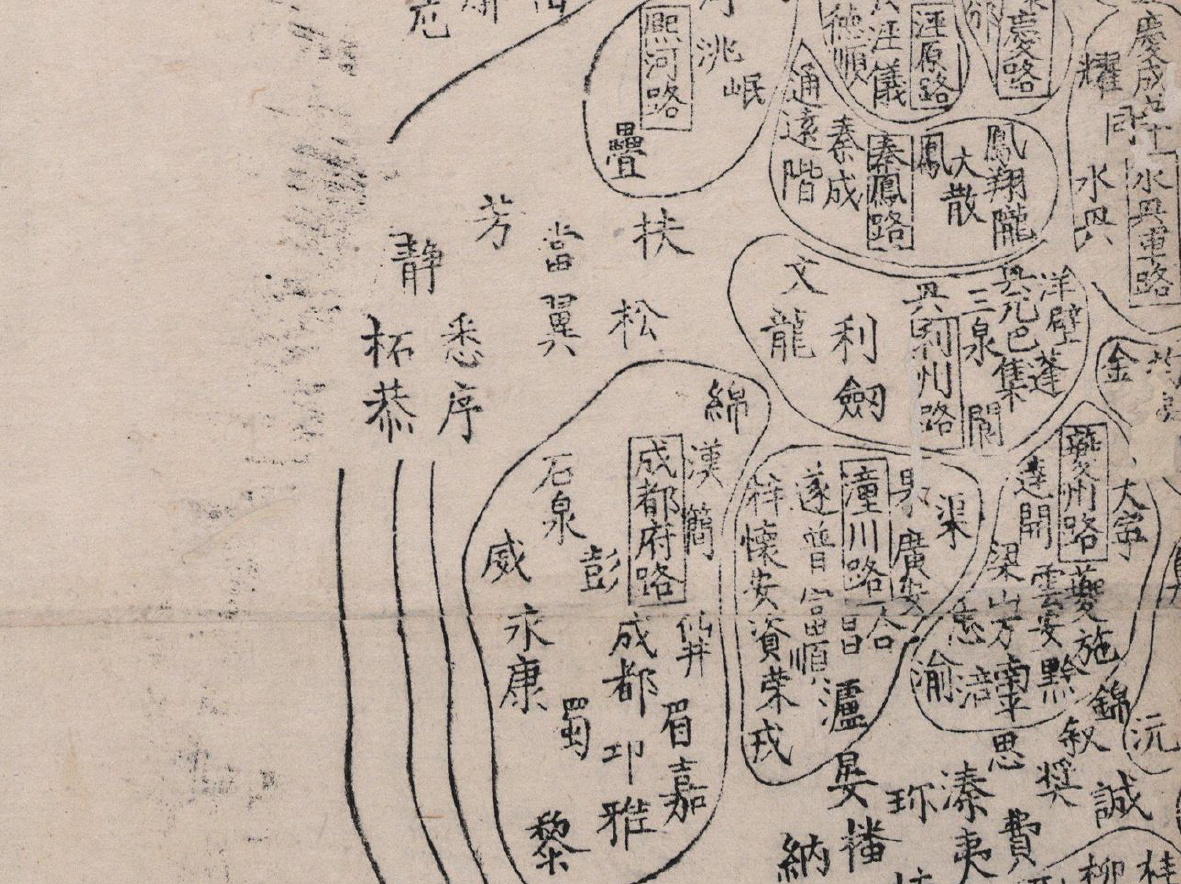 熙河路
洮
岷
疊
德順
涇儀
涇原路
慶路
慶成
耀
同
通遠
階
秦成
秦鳳路
鳳
大散
鳳翔隴
水興
永興軍路
芳
靜
當
翼
扶
松
柘
恭
悉
序
文
龍
利
劒
興
利州路
三泉
閬
興元巴集
洋壁蓬
金
綿
成都府路
漢
簡
石泉
威
彭
永康
成都
仙井
蜀
眉
邛
嘉
雅
黎
梓
懷安資榮戎
遂普富順
瀘
潼川路
果
廣安
渠
昌
合
夔州路
達開
大寧
梁山
雲安
夔施
忠
渝
涪
南平
黔
錦
敘
沅
思
獎
晏
播
納
珎
溱
夷
費
誠
柳
桂